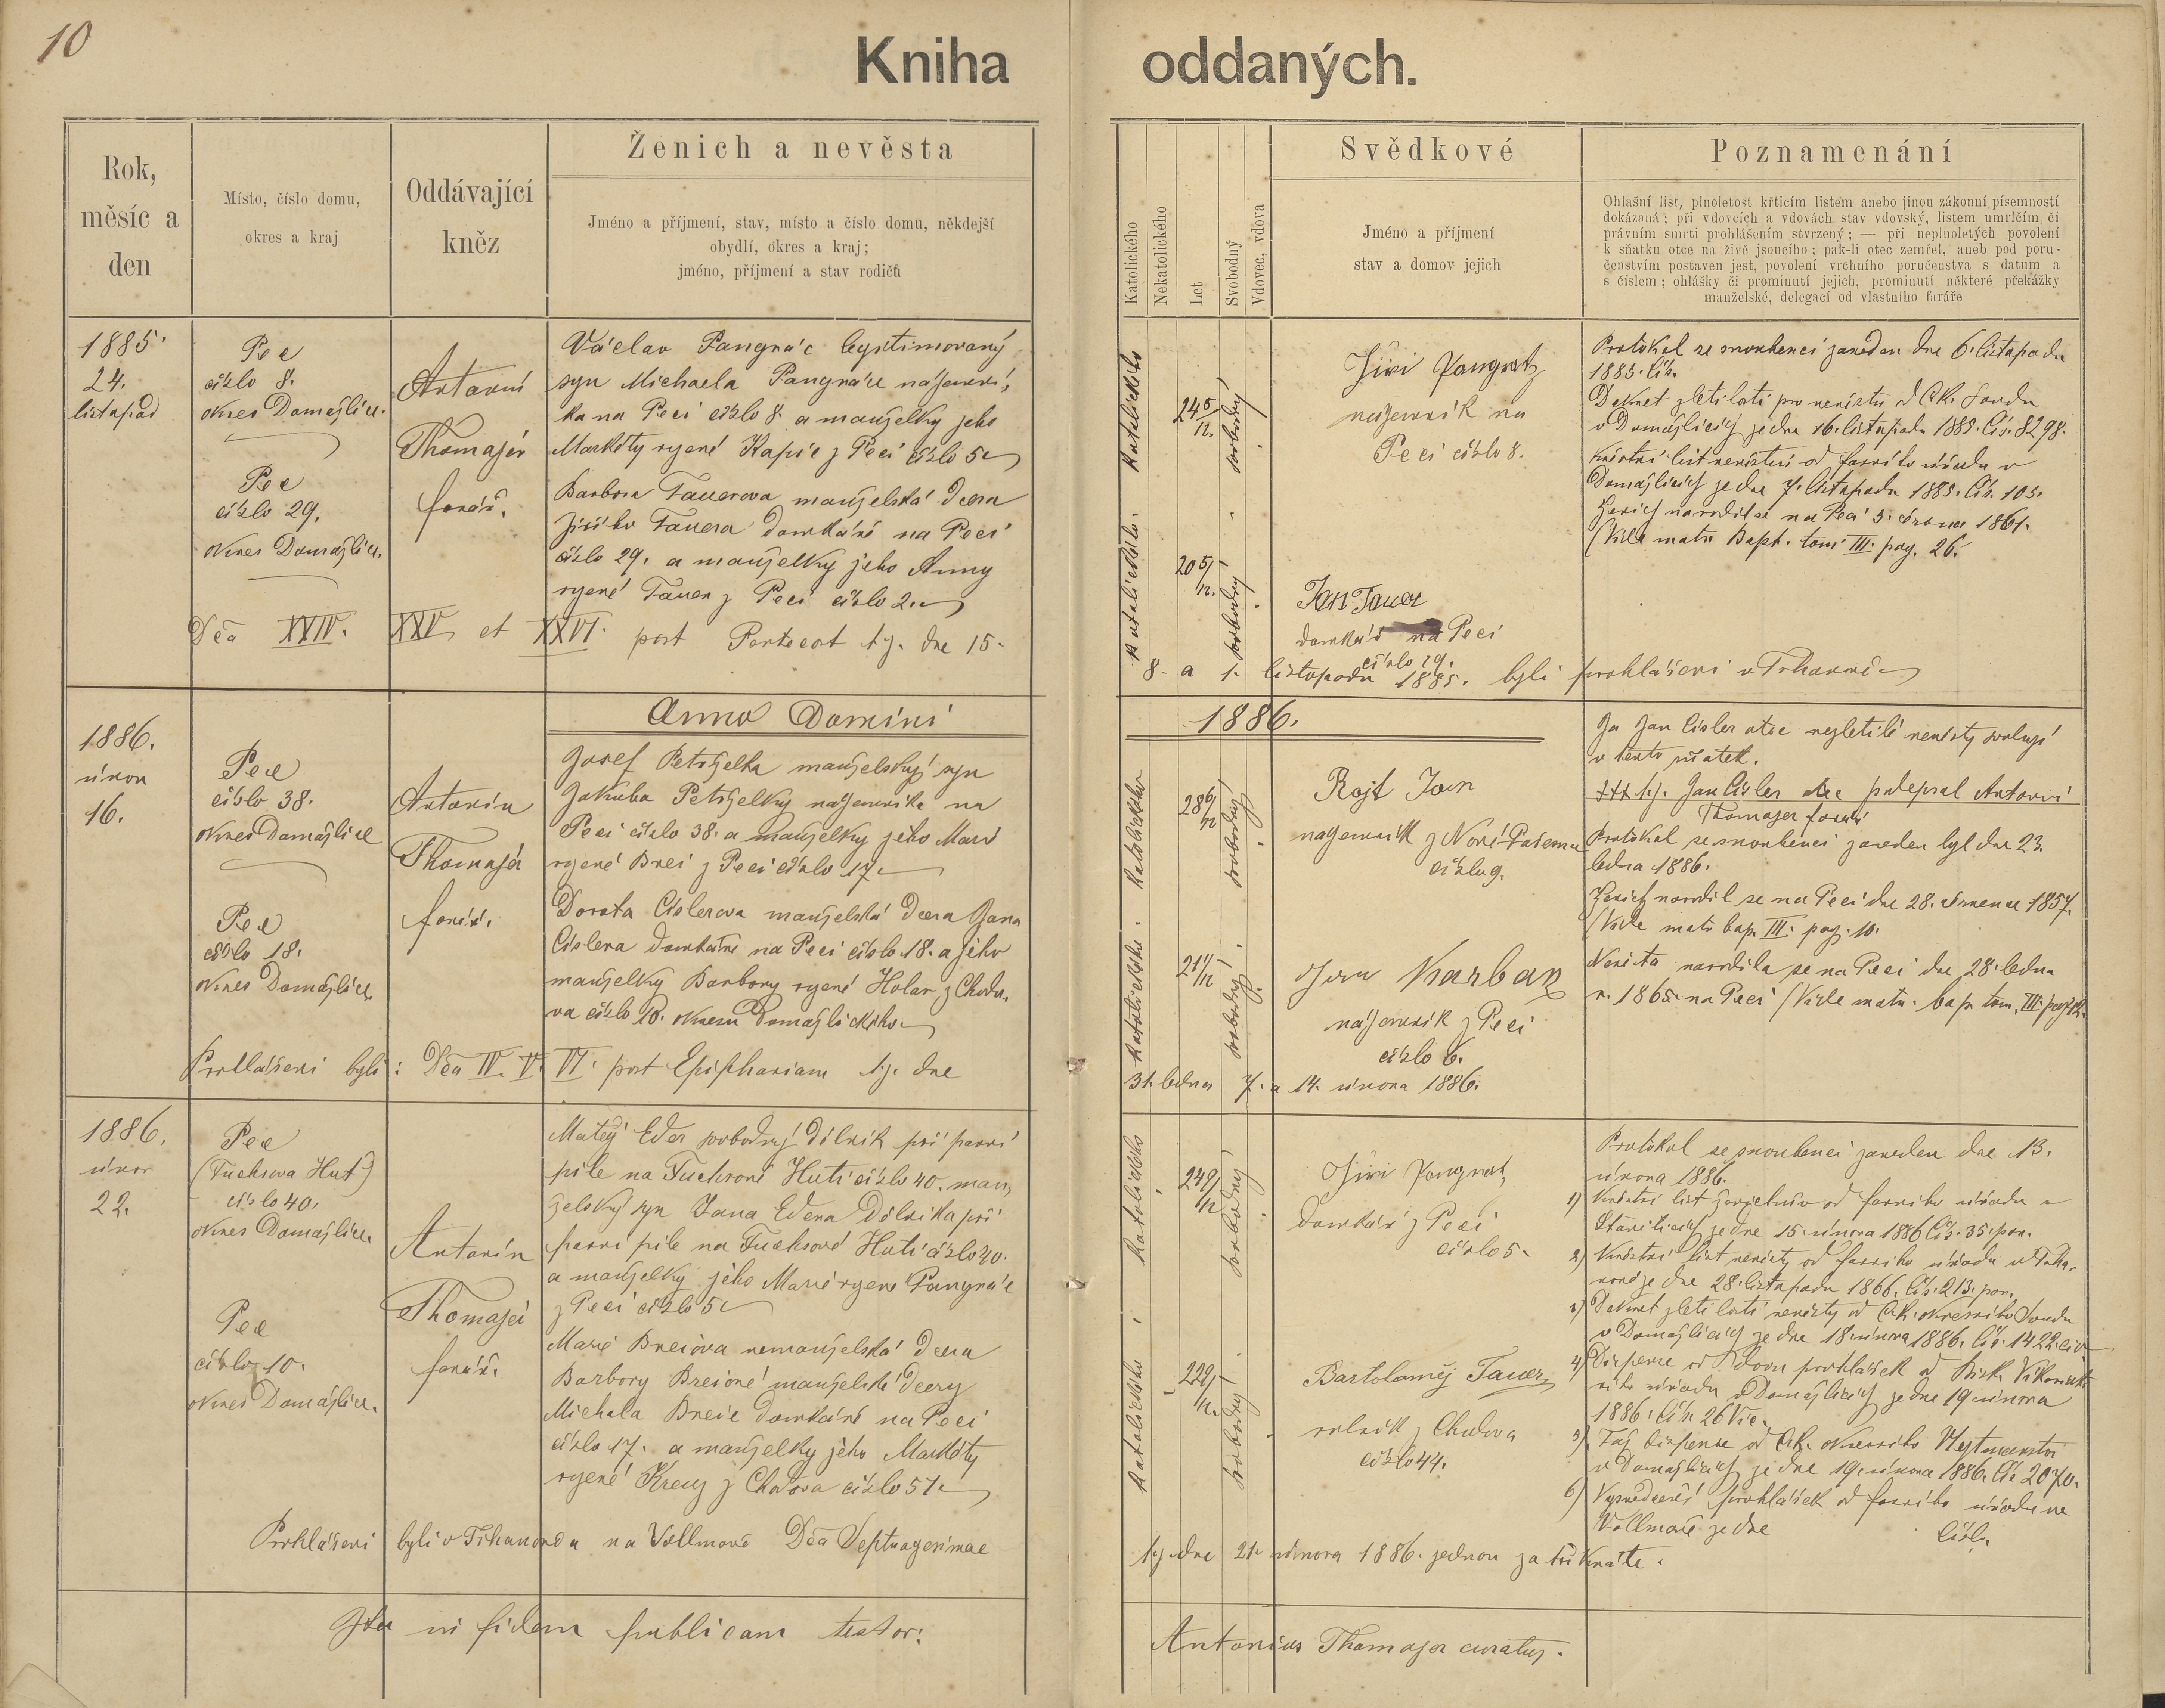 10
Kniha oddaných.
Rok,
měsíc a
den
Místo, číslo domu,
okres a kraj
Oddávající
kněz
Ženich a nevěsta
Jméno a příjmení, stav, místo a číslo domu, někdejší
obydlí, okres a kraj;
jméno, příjmení a stav rodičů
Katolického
Nekatolického
Let
Svobodný
Vdovec, vdova
Svědkové
Jméno a příjmení
stav a domov jejich
Poznamenání
Ohlašní list, plnoletost křticím listem anebo jinou zákonní písemností
dokázaná; při vdovcích a vdovách stav vdovský, listem umrlčím, či
právním smrti prohlášením stvrzený; — při neplnoletých povolení
k sňatku otce na živě jsoucího; pak-li otec zemřel, aneb pod poru-
čenstvím postaven jest, povolení vrchního poručenstva s datum a
s číslem; ohlášky či prominutí jejich, prominutí některé překážky
manželské, delegací od vlastního faráře
1885.
24.
listopad
Pec
číslo 8.
okres Domažlice.
Pec
číslo 29.
okres Domažlice.
Antonín
Thomajer
farář.
Václav Pangrác legitimovaný
syn Michaela Pangráce nájemní-
ka na Peci číslo 8. a manželky jeho
Markéty rozené Kapic z Peci číslo 5
Barbora Tauerova manželská dcera
Jiřího Tauera domkáře na Peci
číslo 29. a manželky jeho Anny
rozené Tauer z Peci číslo 2.
Katolického
24 5/12.
svobodný
Katolického
20 5/12.
svobodný
Jiří Pangratz
nájemník na
Peci číslo 8.
Jan Tauer
domkář na Peci
číslo 29.
Protokol se snoubenci zaveden dne 6. listopadu
1885. Čís.
Dekret zletilosti pro nevěstu od C.k. soudu
v Domažlicích je dne 16. listopadu 1885. Čís. 8298.
Křestní list nevěstin od farního úřadu v
Domažlicích je dne 7. listopadu 1885. Čís. 105.
Ženich narodil se na Peci 3. 1861.
(Vide matr. Bapt. tom. III. pag. 26.
Dca XXIV. XXV et XXVI. post Pentecost t.j. dne 15.
8. a 1. listopadu 1885. byli prohlášeni v Trhanově
Anno Domini 1886.
1886.
únor
16.
Pec
číslo 38.
okres Domažlice
Pec
číslo 18.
okres Domažlice
Antonín
Thomajer
farář.
Josef Petrželka manželský syn
Jakuba Petrželky nájemníka na
Peci číslo 38. a manželky jeho Marie
rozené Brei z Peci číslo 17.
Dorota Cislerova manželská dcera Jana
Cislera domkáře na Peci číslo 18. a jeho
manželky Barbory rozené Holar z Chodo-
va číslo 10. okresu Domažlického
Katolického
28 6/12
svobodný
Katolického
21 1/12
svobodný
Rojt Jan
nájemník z Nové Pasečnice
číslo 9.
Jiří Karban
nájemník z Peci
číslo 6.
Já Jan Cisler otec nezletilé nevěsty svoluji
v tento sňatek.
††† t.j. Jan Cisler otec podepsal Antonín
Thomajer farář
Protokol se snoubenci zaveden byl dne 23.
ledna 1886.
Ženich narodil se na Peci dne 28. července 1857.
(Vide matr. bap. III. pag. 10.
Nevěsta narodila se na Peci dne 28. ledna
r. 1865. na Peci (Vide matr. bap. tom. III. pag.
Prohlášeni byli: Dca IV. V. VI. post Epiphaniam t.j. dne
31. ledna 7. a 14. února 1886.
1886.
únor
22.
Pec
(Fuchsova Huť)
číslo 40.
okres Domažlice.
Pec
číslo 10.
okres Domažlice.
Antonín
Thomajer
farář.
Matěj Eder svobodný dělník při parní
pile na Fuchsově Huti číslo 40. man-
želský syn Jana Edera dělníka při
parní pile na Fuchsově Huti číslo 40.
a manželky jeho Marie rozené Pangrác
z Peci číslo 5
Marie Breiova nemanželská dcera
Barbory Breiové manželské dcery
Michala Breie domkáře na Peci
číslo 17. a manželky jeho Markéty
rozené Kreuz z Chodova číslo 57.
Katolického
24 9/12
svobodný
Katolického
22 2/12.
svobodný
Jiří Pangratz
domkář z Peci
číslo 5.
Bartolomej Tauer
rolník z Chodova
číslo 44.
Protokol se snoubenci zaveden dne 13.
února 1886.
1) Křestní list ženichův od farního úřadu v
je dne 15. února 1886 Čís. 35. por.
2) Křestní list nevěsty od farního úřadu v Trha-
nově je dne 28. listopadu 1866. Čís. 213. por.
3) Dekret zletilosti nevěsty od C.k. okresního soudu
v Domažlicích je dne 18. února 1886. Čís. 1422. civ.
4) Dispense od dvou prohlášek od Bisk. Vikariát-
ního úřadu v Domažlicích je dne 19. února
1886. Čís. 26 Vic.
5) Táž dispense od C.k. okresního Hejtmanství
v Domažlicích je dne 19. února 1886. Čís. 2070.
6) Vysvědčení prohlášek od farního úřadu na
Vollmavě je dne Číslo
Prohlášeni byli v Trhanově a na Vollmavě Dca Septuagesimae
t.j. dne 21. února 1886. jednou za třikráte.
Ita in fidem publicam testor:
Antonius Thomajer curatus.